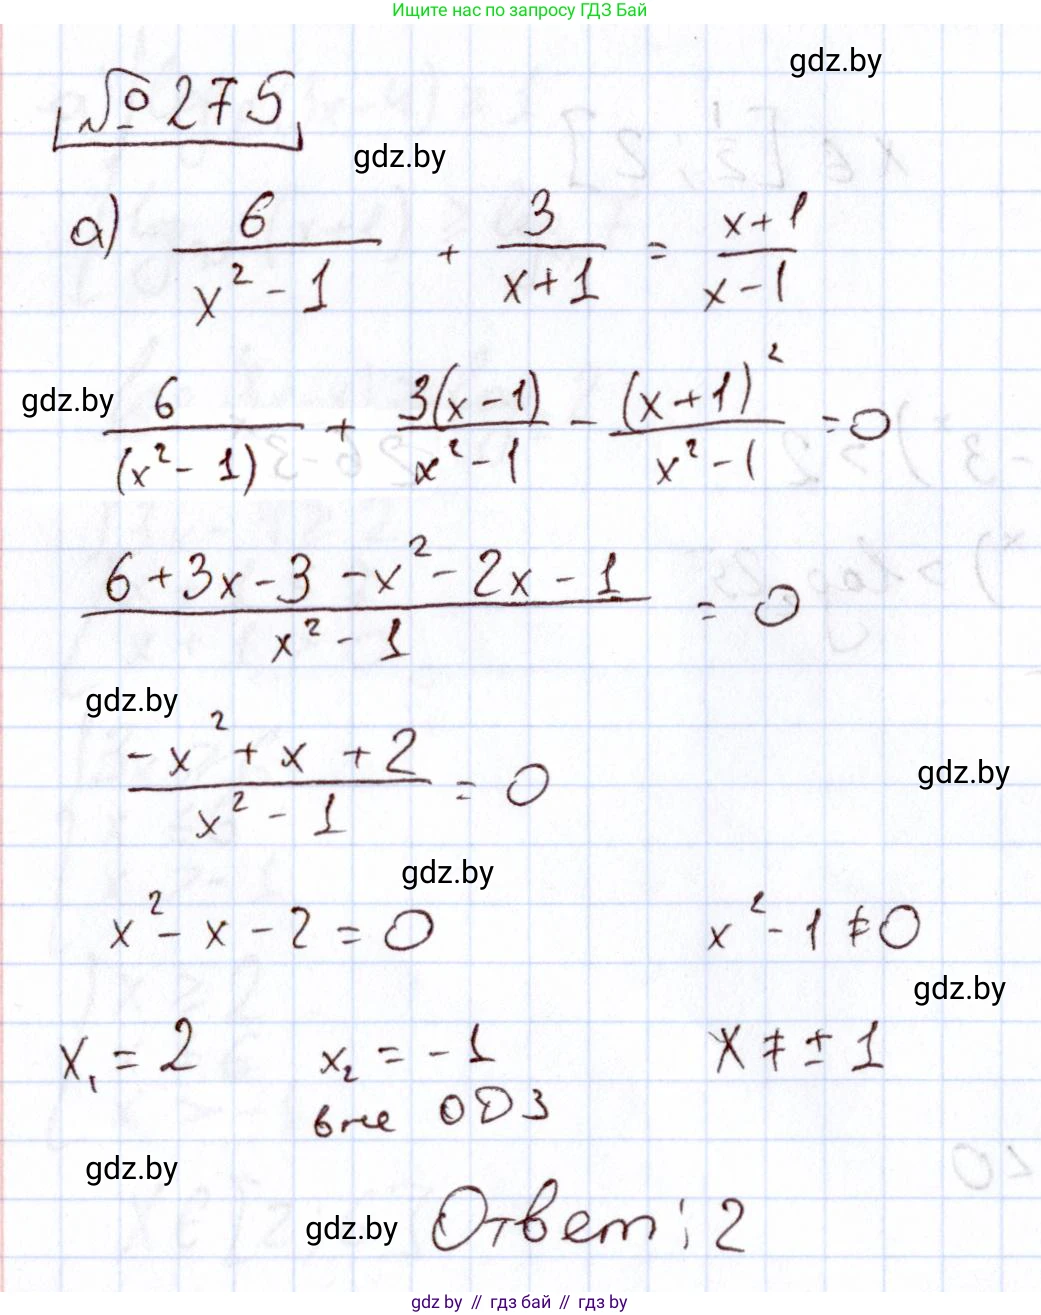 Ищите нас по запросу ГДЗ Бай
gdz.by
№ 275
gdz.by
а) 6/(x² - 1) + 3/(x + 1) = (x + 1)/(x - 1)
gdz.by
6/(x² - 1) + 3(x - 1)/(x² - 1) - (x + 1)²/(x² - 1) = 0
(6 + 3x - 3 - x² - 2x - 1)/(x² - 1) = 0
gdz.by
(-x² + x + 2)/(x² - 1) = 0
gdz.by
gdz.by
x² - x - 2 = 0 x² - 1 ≠ 0
gdz.by
x₁ = 2 x₂ = -1 x ≠ ± 1
вне ОДЗ
gdz.by
gdz.by
Ответ: 2
gdz.by // гдз бай // гдз by